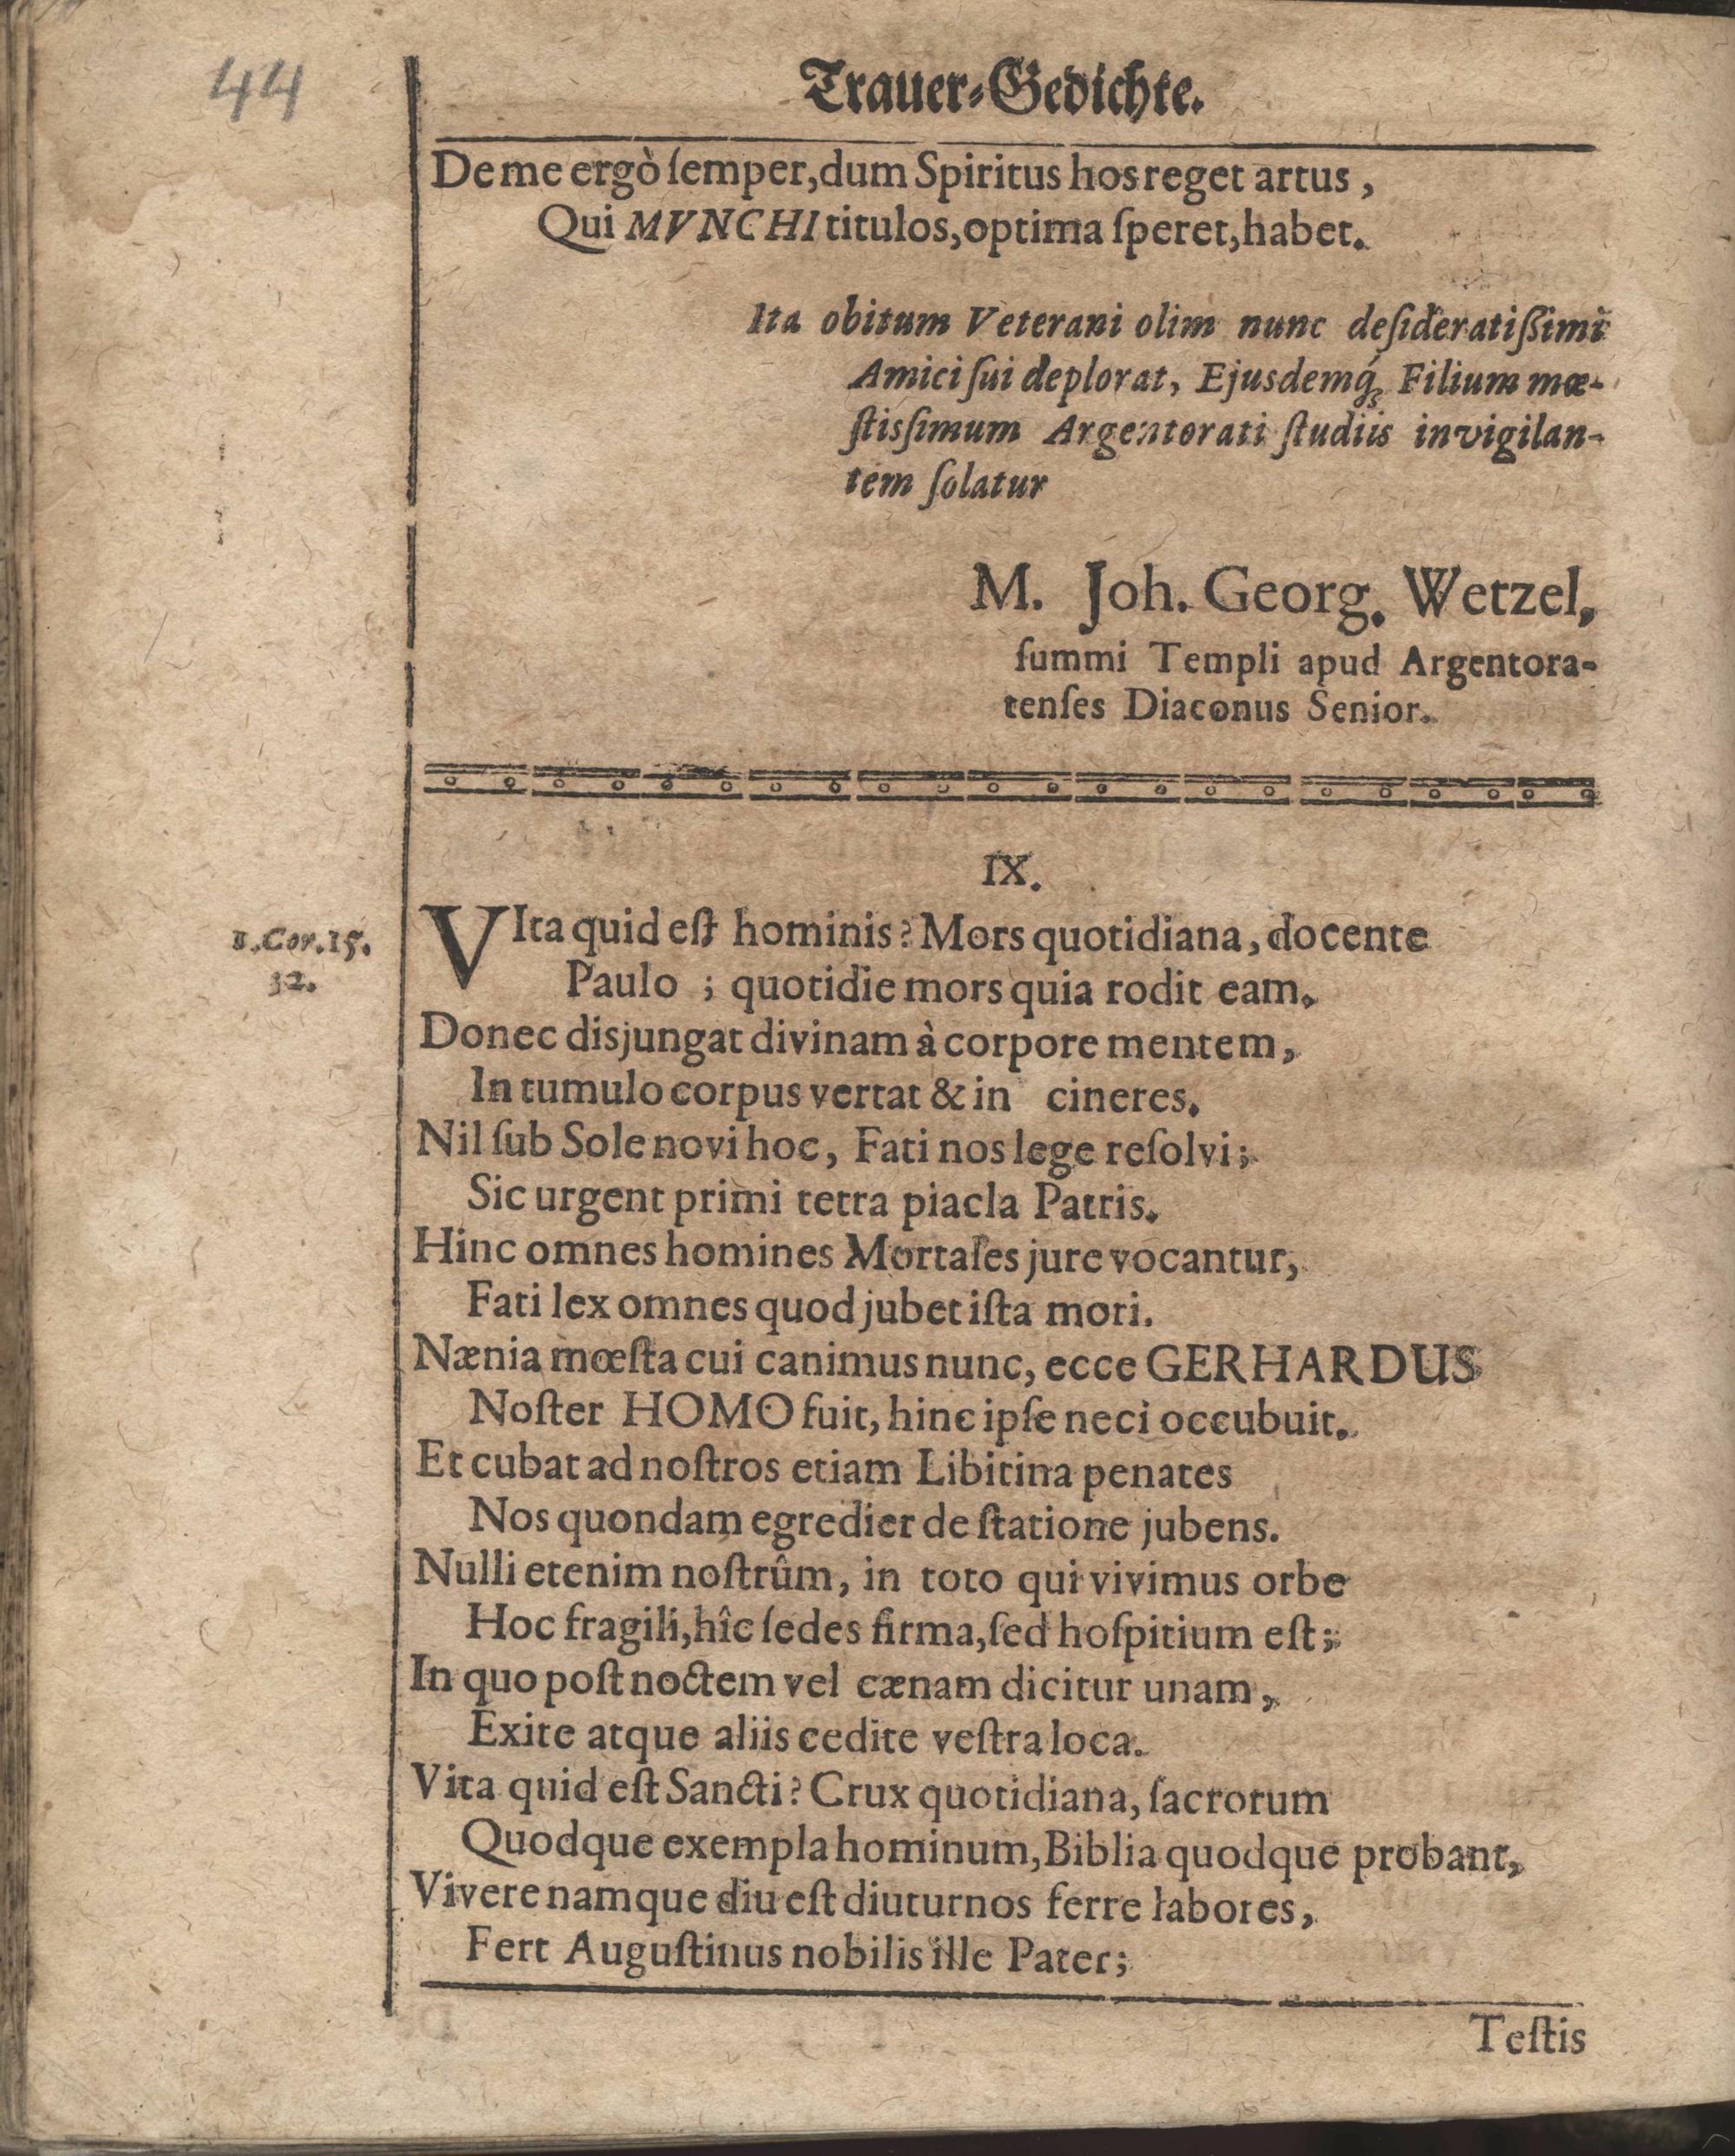 44
Trauer-Gedichte.
De me ergò ſemper, dum Spiritus hos reget artus,
Qui MVNCHI titulos, optima ſperet, habet.
Ita obitum Veterani olim nunc deſideratißimi
Amici ſui deplorat, Ejusdemq́ꝫ Filium mœ-
ſtisſimum Argentorati ſtudiis invigilan-
tem ſolatur
M. Joh. Georg. Wetzel,
ſummi Templi apud Argentora-
tenſes Diaconus Senior.
IX.
VIta quid eſt hominis? Mors quotidiana, docente
1. Cor. 15.
32.
Paulo ; quotidie mors quia rodit eam,
Donec disjungat divinam à corpore mentem,
In tumulo corpus vertat & in cineres.
Nil ſub Sole novi hoc, Fati nos lege reſolvi;
Sic urgent primi tetra piacla Patris.
Hinc omnes homines Mortales jure vocantur,
Fati lex omnes quod jubet iſta mori.
Nænia mœſta cui canimus nunc, ecce GERHARDUS
Noſter HOMO fuit, hinc ipſe neci occubuit.
Et cubat ad noſtros etiam Libitina penates
Nos quondam egredier de ſtatione jubens.
Nulli etenim noſtrûm, in toto qui vivimus orbe
Hoc fragili, hîc ſedes firma, ſed hoſpitium eſt;
In quo poſt noctem vel cænam dicitur unam,
Exite atque aliis cedite veſtra loca.
Vita quid eſt Sancti? Crux quotidiana, ſacrorum
Quodque exempla hominum, Biblia quodque probant,
Vivere namque diu eſt diuturnos ferre labores,
Fert Auguſtinus nobilis ille Pater;
Teſtis